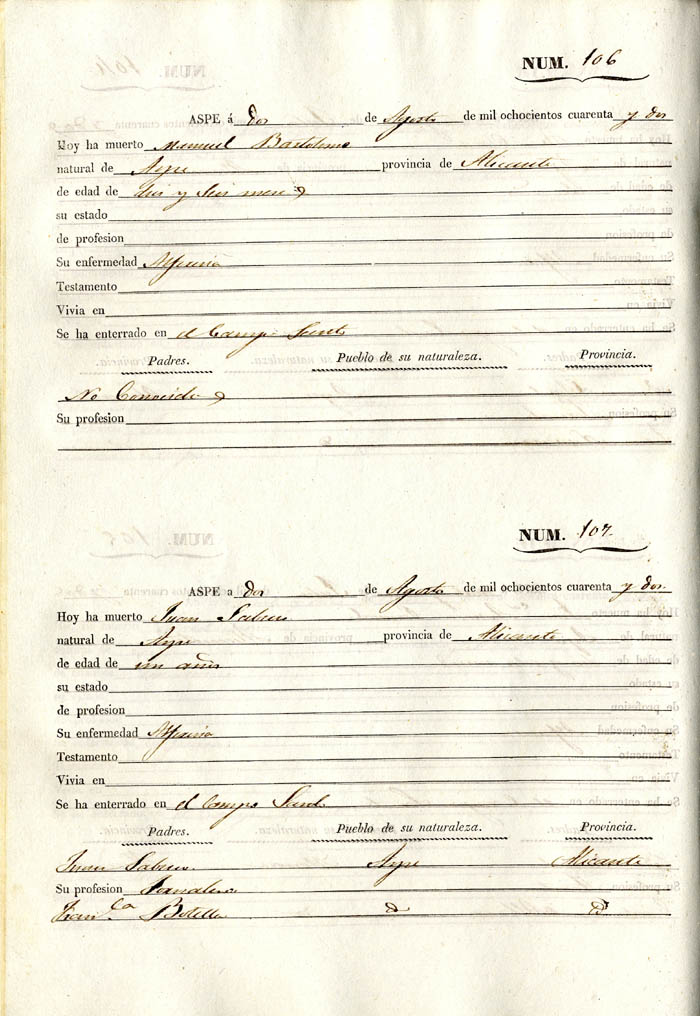 NUM. 106
ASPE á dos de Agosto de mil ochocientos cuarenta y dos
Hoy ha muerto Manuel Bartolome
natural de Aspe provincia de Alicante
de edad de y seis meses
su estado
de profesion
Su enfermedad Alferecia
Testamento
Vivia en
Se ha enterrado en el Campo Santo
Padres. Pueblo de su naturaleza. Provincia.
No Conocidos
Su profesion
NUM. 107.
ASPE a dos de Agosto de mil ochocientos cuarenta y dos
Hoy ha muerto Juan
natural de Aspe provincia de Alicante
de edad de un años
su estado
de profesion
Su enfermedad Alferecia
Testamento
Vivia en
Se ha enterrado en el Campo Santo
Padres. Pueblo de su naturaleza. Provincia.
Juan Aspe Alicante
Su profesion Jornalero
Fran.ca Botella